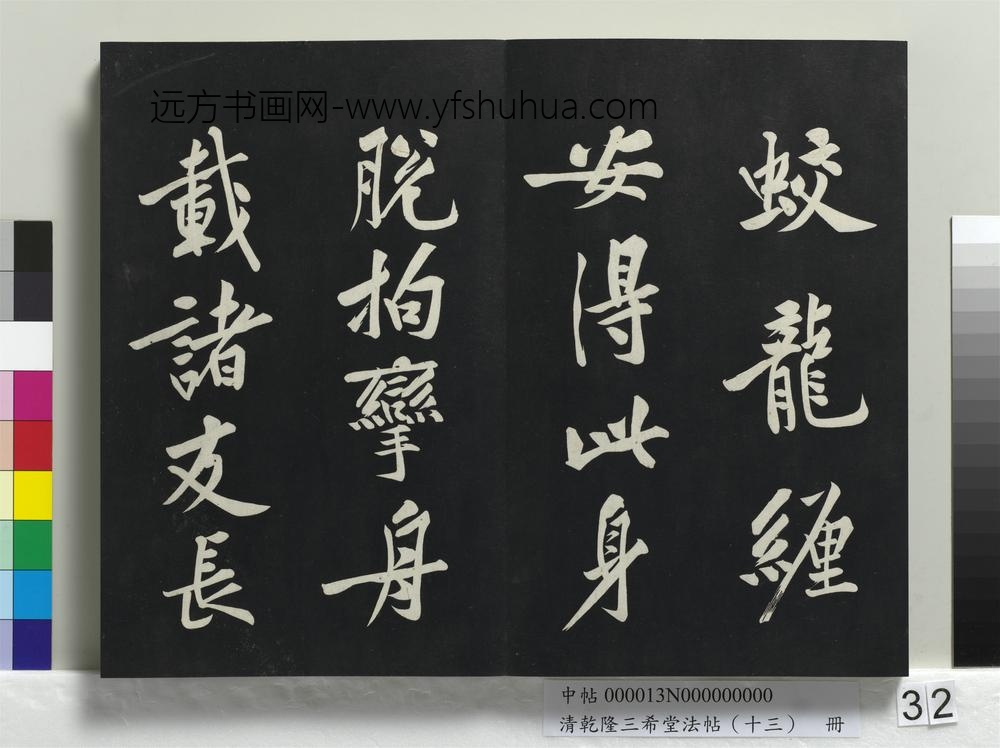 远方书画网-www.yfshuhua.com
蛟龍纏
安得此身
脫拘攣舟
載諸友長
中帖 000013N000000000
清乾隆三希堂法帖（十三） 冊
32